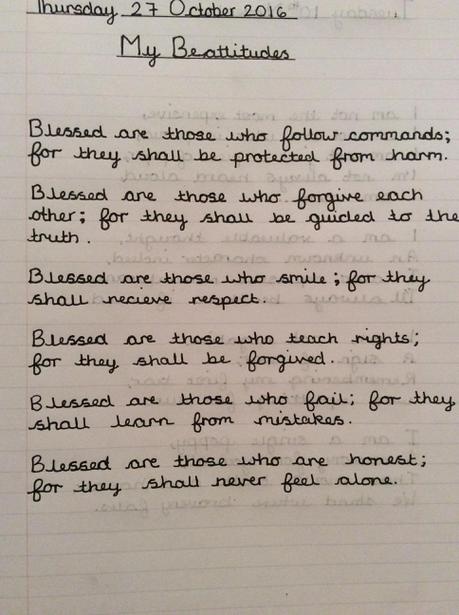 Thursday 27 October 2016
My Beattitudes
Blessed are those who follow commands;
for they shall be protected from harm.
Blessed are those who forgive each
other; for they shall be guided to the
truth.
Blessed are those who smile; for they
shall recieve respect.
Blessed are those who teach rights;
for they shall be forgived.
Blessed are those who fail; for they
shall learn from mistakes.
Blessed are those who are honest;
for they shall never feel alone.